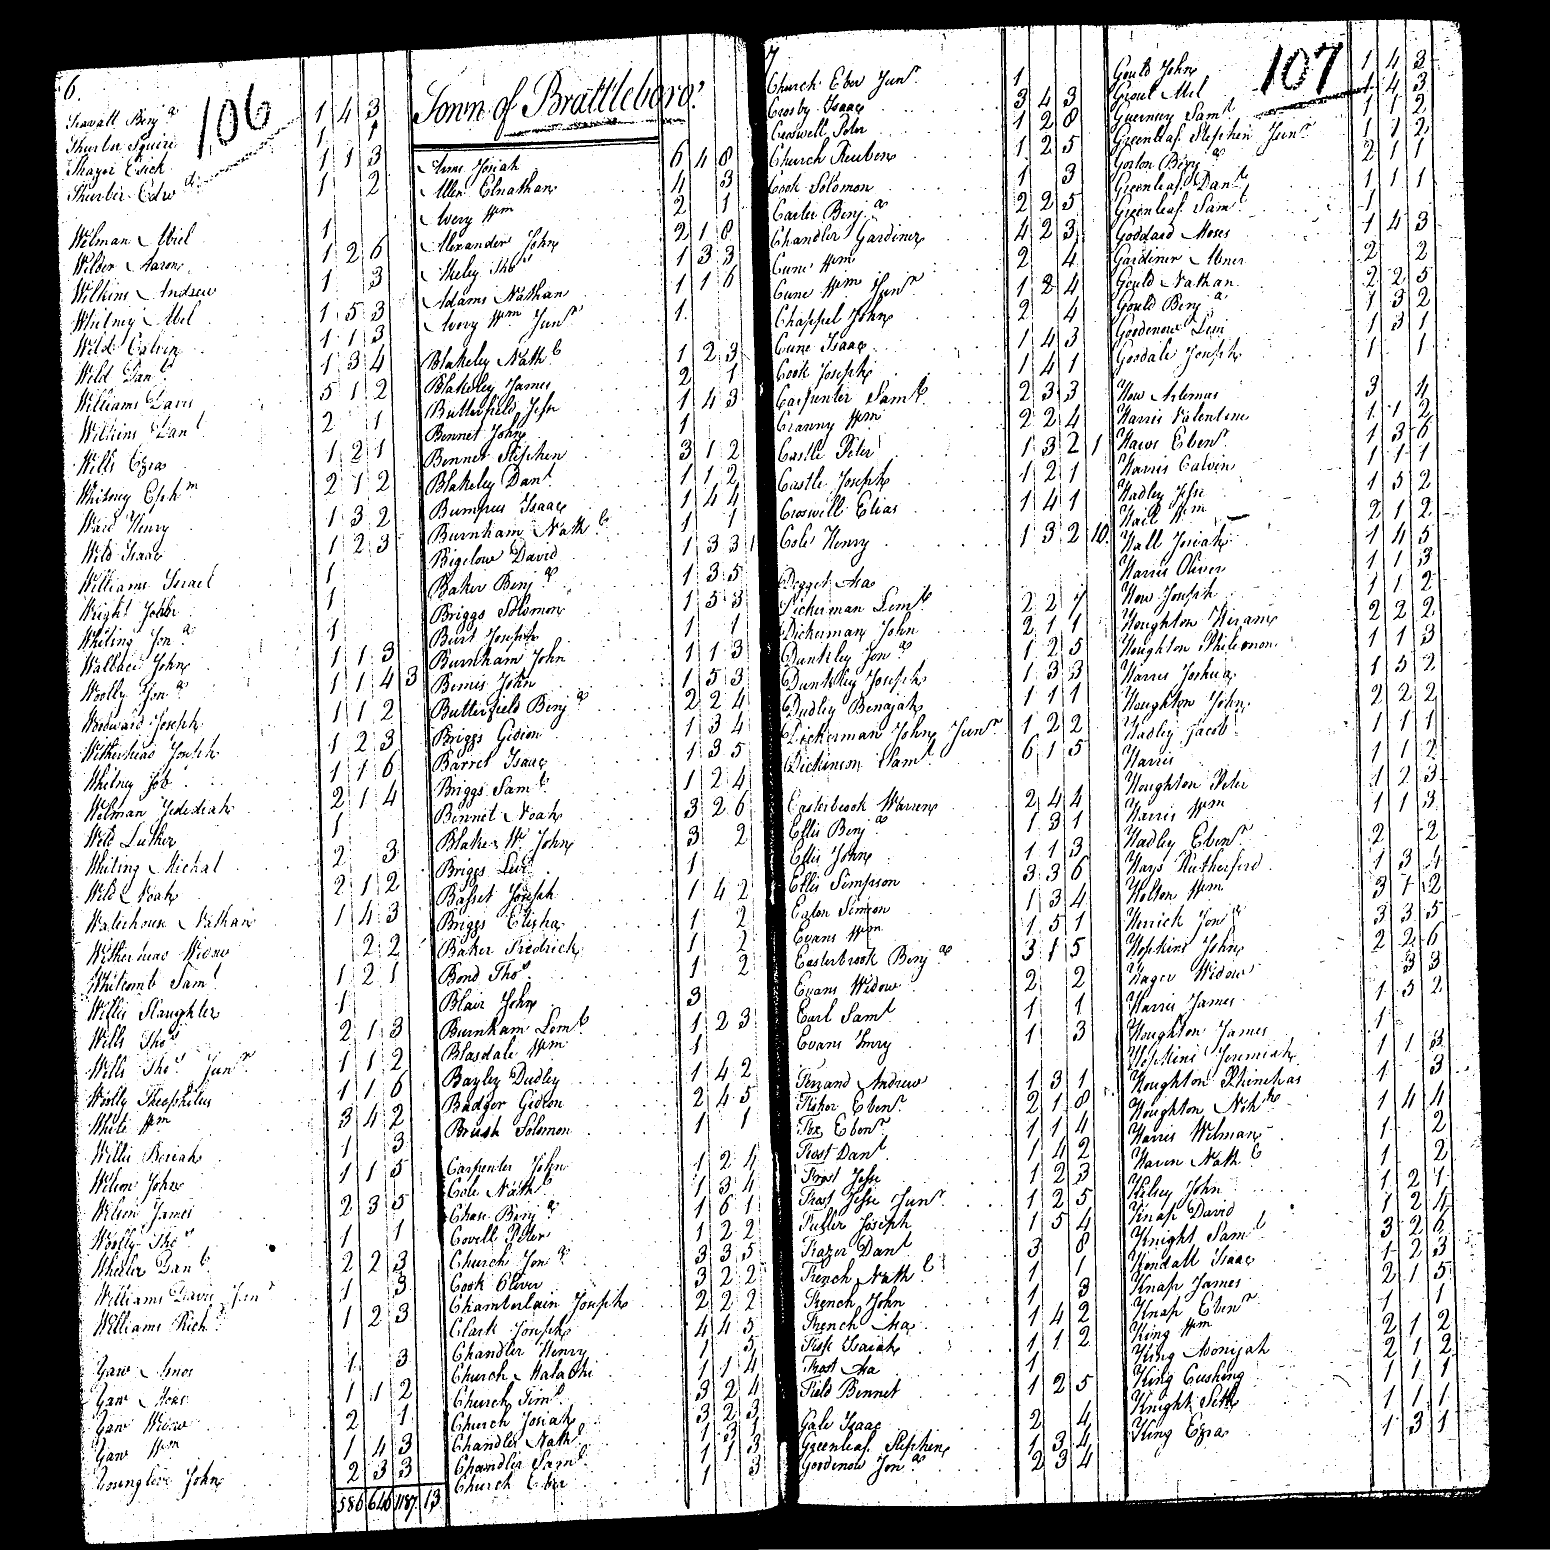 6.
106
Thurber Squire 1 1
Thayer Esick 1 1 3
Thurber Edwd 1 2
Wilman Abiel 1
Wilder Aaron 1 2 6
Wilkins Andrew 1 3
Whitney Abel 1 5 3
Wild Calvin 1 1 3
Wild Danl 1 3 4
Williams Davis 5 1 2
Wilkins Danl 2 1
Wills Ezra 1 2 1
Whitney Ephm 2 1 2
Ward Henry 1 3 2
Wild Isaac 1 2 3
Williams Israel 1
Wright Jobbe 1
Whiting Jona 1
Wallace John 1 1 3
Woolly Jona 1 1 4 3
Woodward Joseph 1 1 2
Witherhead Joseph 1 2 3
Whitney Job 1 1 6
Wilman Jedediah 2 1 4
Wild Luther 1
Whiting Michal 2 3
Wild Noah 2 1 2
Waterhouse Nathan 1 4 3
Witherhead Widow 2 2
Whitcomb Saml 1 2 1
Willis Slaughter 1
Wills Thos 2 1 3
Wills Thos Junr 1 1 2
Woolly Theophilus 1 1 6
White Wm 3 4 2
Willis Beriah 1 3
Wilson John 1 1 5
Wilson James 2 3 5
Woolly Thos 1 1
Wheeler Danl 2 2 3
Williams Davis Junr 1 3
Williams Richd 1 2 3
Yaw Amos 1 3
Yaw Moses 1 1 2
Yaw Widow 2 1
Yaw Wm 1 4 3
Younglove John 2 3 3
586 646 1187 13
Town of Brattleboro'
Arms Josiah 6 4 8
Allen Elnathan 4 3
Avery Wm 2 1
Alexander John 2 1 8
Akeley Thos 1 3 3
Adams Nathan 1 1 6
Avery Wm Junr 1
Blakeley Nathl 1 2 3
Blakeley James 2 1
Butterfield Jesse 1 4 3
Bennet John 1
Bennet Stephen 3 1 2
Blakeley Danl 1 1 2
Bumpus Isaac 1 4 4
Burnham Nathl 1 1
Bigelow David 1 3 3 1
Baker Benja 1 3 5
Briggs Solomon 1 5 3
Burt Joseph 1 1
Burnham John 1 1 3
Bemis John 1 5 3
Butterfield Benja 2 2 4
Briggs Gideon 1 3 4
Barret Isaac 1 3 5
Briggs Saml 1 2 4
Bennet Noah 3 2 6
Blake Wr John 3 2
Briggs Levi 1
Basset Joseph 1 4 2
Briggs Elisha 1 2
Baker Fredrick 1 2
Bond Thos 1 2
Blair John 3
Burnham Leml 1 2 3
Blasdale Wm 1
Bayley Dudley 1 4 2
Badger Gideon 2 4 5
Brush Solomon 1 1
Carpenter John 1 2 4
Cole Nathl 1 3 4
Chase Benja 1 6 1
Covell Peter 1 2 2
Church Jona 3 3 5
Cook Oliver 3 2 2
Chamberlain Joseph 2 2 2
Clark Joseph 4 4 5
Chandler Henry 1 5
Church Malachi 1 1 4
Church Timo 3 2 4
Church Josiah 3 2 3
Chandler Nathl 1 3 1
Chandler Saml 1 1 3
Church Eber 1 3
7
107
Church Eber Junr 1
Crosby Isaac 3 4 3
Croswell Peter 1 2 8
Church Reuben 1 2 5
Cook Solomon 1 3
Carter Benja 2 2 5
Chandler Gardiner 4 2 3
Cune Wm 2 4
Cune Wm Junr 1 2 4
Chappel John 2 4
Cune Isaac 1 4 3
Cook Joseph 1 4 1
Carpenter Saml 2 3 3
Cranny Wm 2 2 4
Castle Peter 1 3 2 1
Castle Joseph 1 2 1
Croswell Elias 1 4 1
Cole Henry 1 3 2 10
Dickerman Leml 2 2 7
Dickerman John 2 1 1
Dunkley Jona 1 2 5
Dunkley Joseph 1 3 3
Dudley Benajah 1 1 1
Dickerman John Junr 1 2 2
Dickinson Saml 6 1 5
Easterbrook Warren 2 4 4
Ellis Benja 1 3 1
Ellis John 1 1 3
Ellis Simpson 3 3 6
Eaton Simeon 1 3 4
Evans Wm 1 5 1
Easterbrook Benja 3 1 5
Evans Widow 2 2
Earl Saml 1 1
Evans Imry 1 3
Ferrand Andrew 1 3 1
Fisher Ebenr 2 1 8
Fox Ebenr 1 1 4
Frost Danl 1 4 2
Frost Jesse 1 2 3
Frost Jesse Junr 1 2 5
Fuller Joseph 1 5 4
Frazer Danl 3 8
French Nathl 1 1
French John 1 3
French Asa 1 4 2
Fisk Isaiah 1 1 2
Frost Asa 1
Field Bennet 1 2 5
Gale Isaac 2 4
Greenleaf Stephen 1 3 4
Goodenow Jona 2 3 4
Gould John 1 4 3
Grout Abel 1 4 3
Guernsey Saml 1 1 2
Greenleaf Stephen Junr 1 1 2
Gorton Benja 2 1 1
Greenleaf Danl 1 1 1
Greenleaf Saml 1
Goddard Moses 1 4 3
Gardiner Abner 2 2
Gould Nathan 2 2 5
Gould Benja 1 3 2
Goodenow Levi 1 3 1
Gosdale Joseph 1 1
How Artemas 3 4
Harris Valentine 1 1 2
Haws Ebenr 1 3 6
Harris Calvin 1 1 1
Hadley Jesse 1 5 2
Hail Wm 2 1 2
Hall Josiah 1 4 5
Harris Oliver 1 1 3
How Joseph 1 1 2
Houghton Hiram 2 2 2
Houghton Philemon 1 1 3
Harris Joshua 1 5 2
Houghton John 2 2 2
Hadley Jacob 1 1 1
Harris 1 1 2
Houghton Peter 1 2 3
Harris Wm 1 1 3
Hadley Ebenr 2 2
Hays Rutherford 1 3 4
Holton Wm 3 1 2
Herrick Jona 3 3 5
Hopkins John 2 2 6
Hager Widow 3 3
Harris James 1 3 2
Houghton James 1
Hopkins Jeremiah 1 1 3
Houghton Phinehas 1 3
Houghton Nehh 1 4 4
Harris Wilman 1 2
Haven Nathl 1 2
Kelsey John 1 2 1
Knap David 1 2 4
Knight Saml 3 2 6
Kendall Isaac 1 2 3
Knap James 2 1 5
Knap Ebenr 1 1
King Wm 2 1 2
King Adonijah 2 1 2
King Cushing 1 1 1
Knight Seth 1 1 1
King Ezra 1 3 1